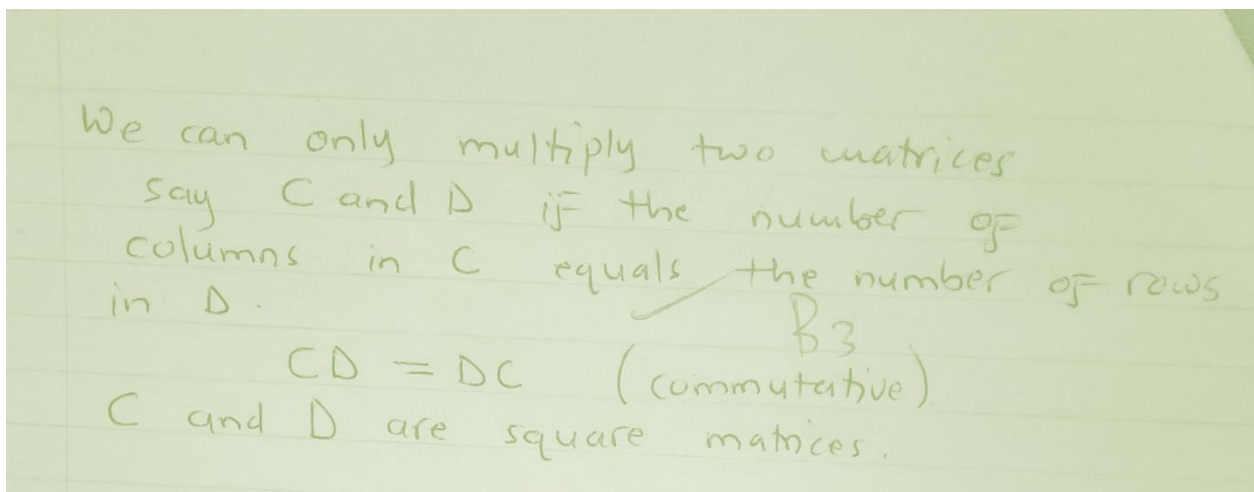 We can only multiply two matrices
say C and D if the number of
columns in C equals the number of rows
in D.
B3
CD = DC (commutative)
C and D are square matrices.